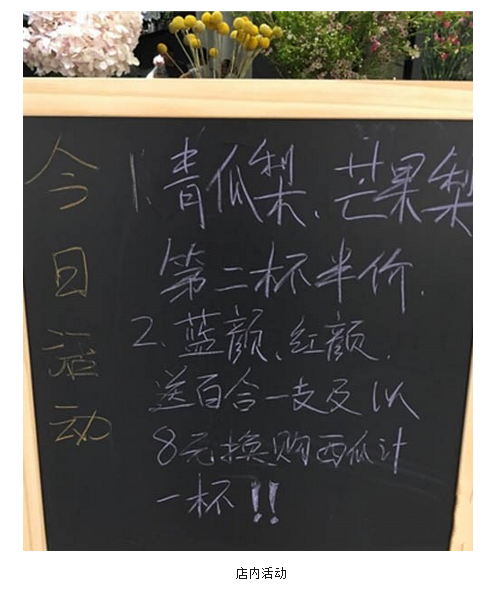 今日活动
1.青瓜梨、芒果梨
第二杯半价.
2.蓝颜、红颜.
送百合一支及以
8元换购西瓜汁
一杯!!
店内活动